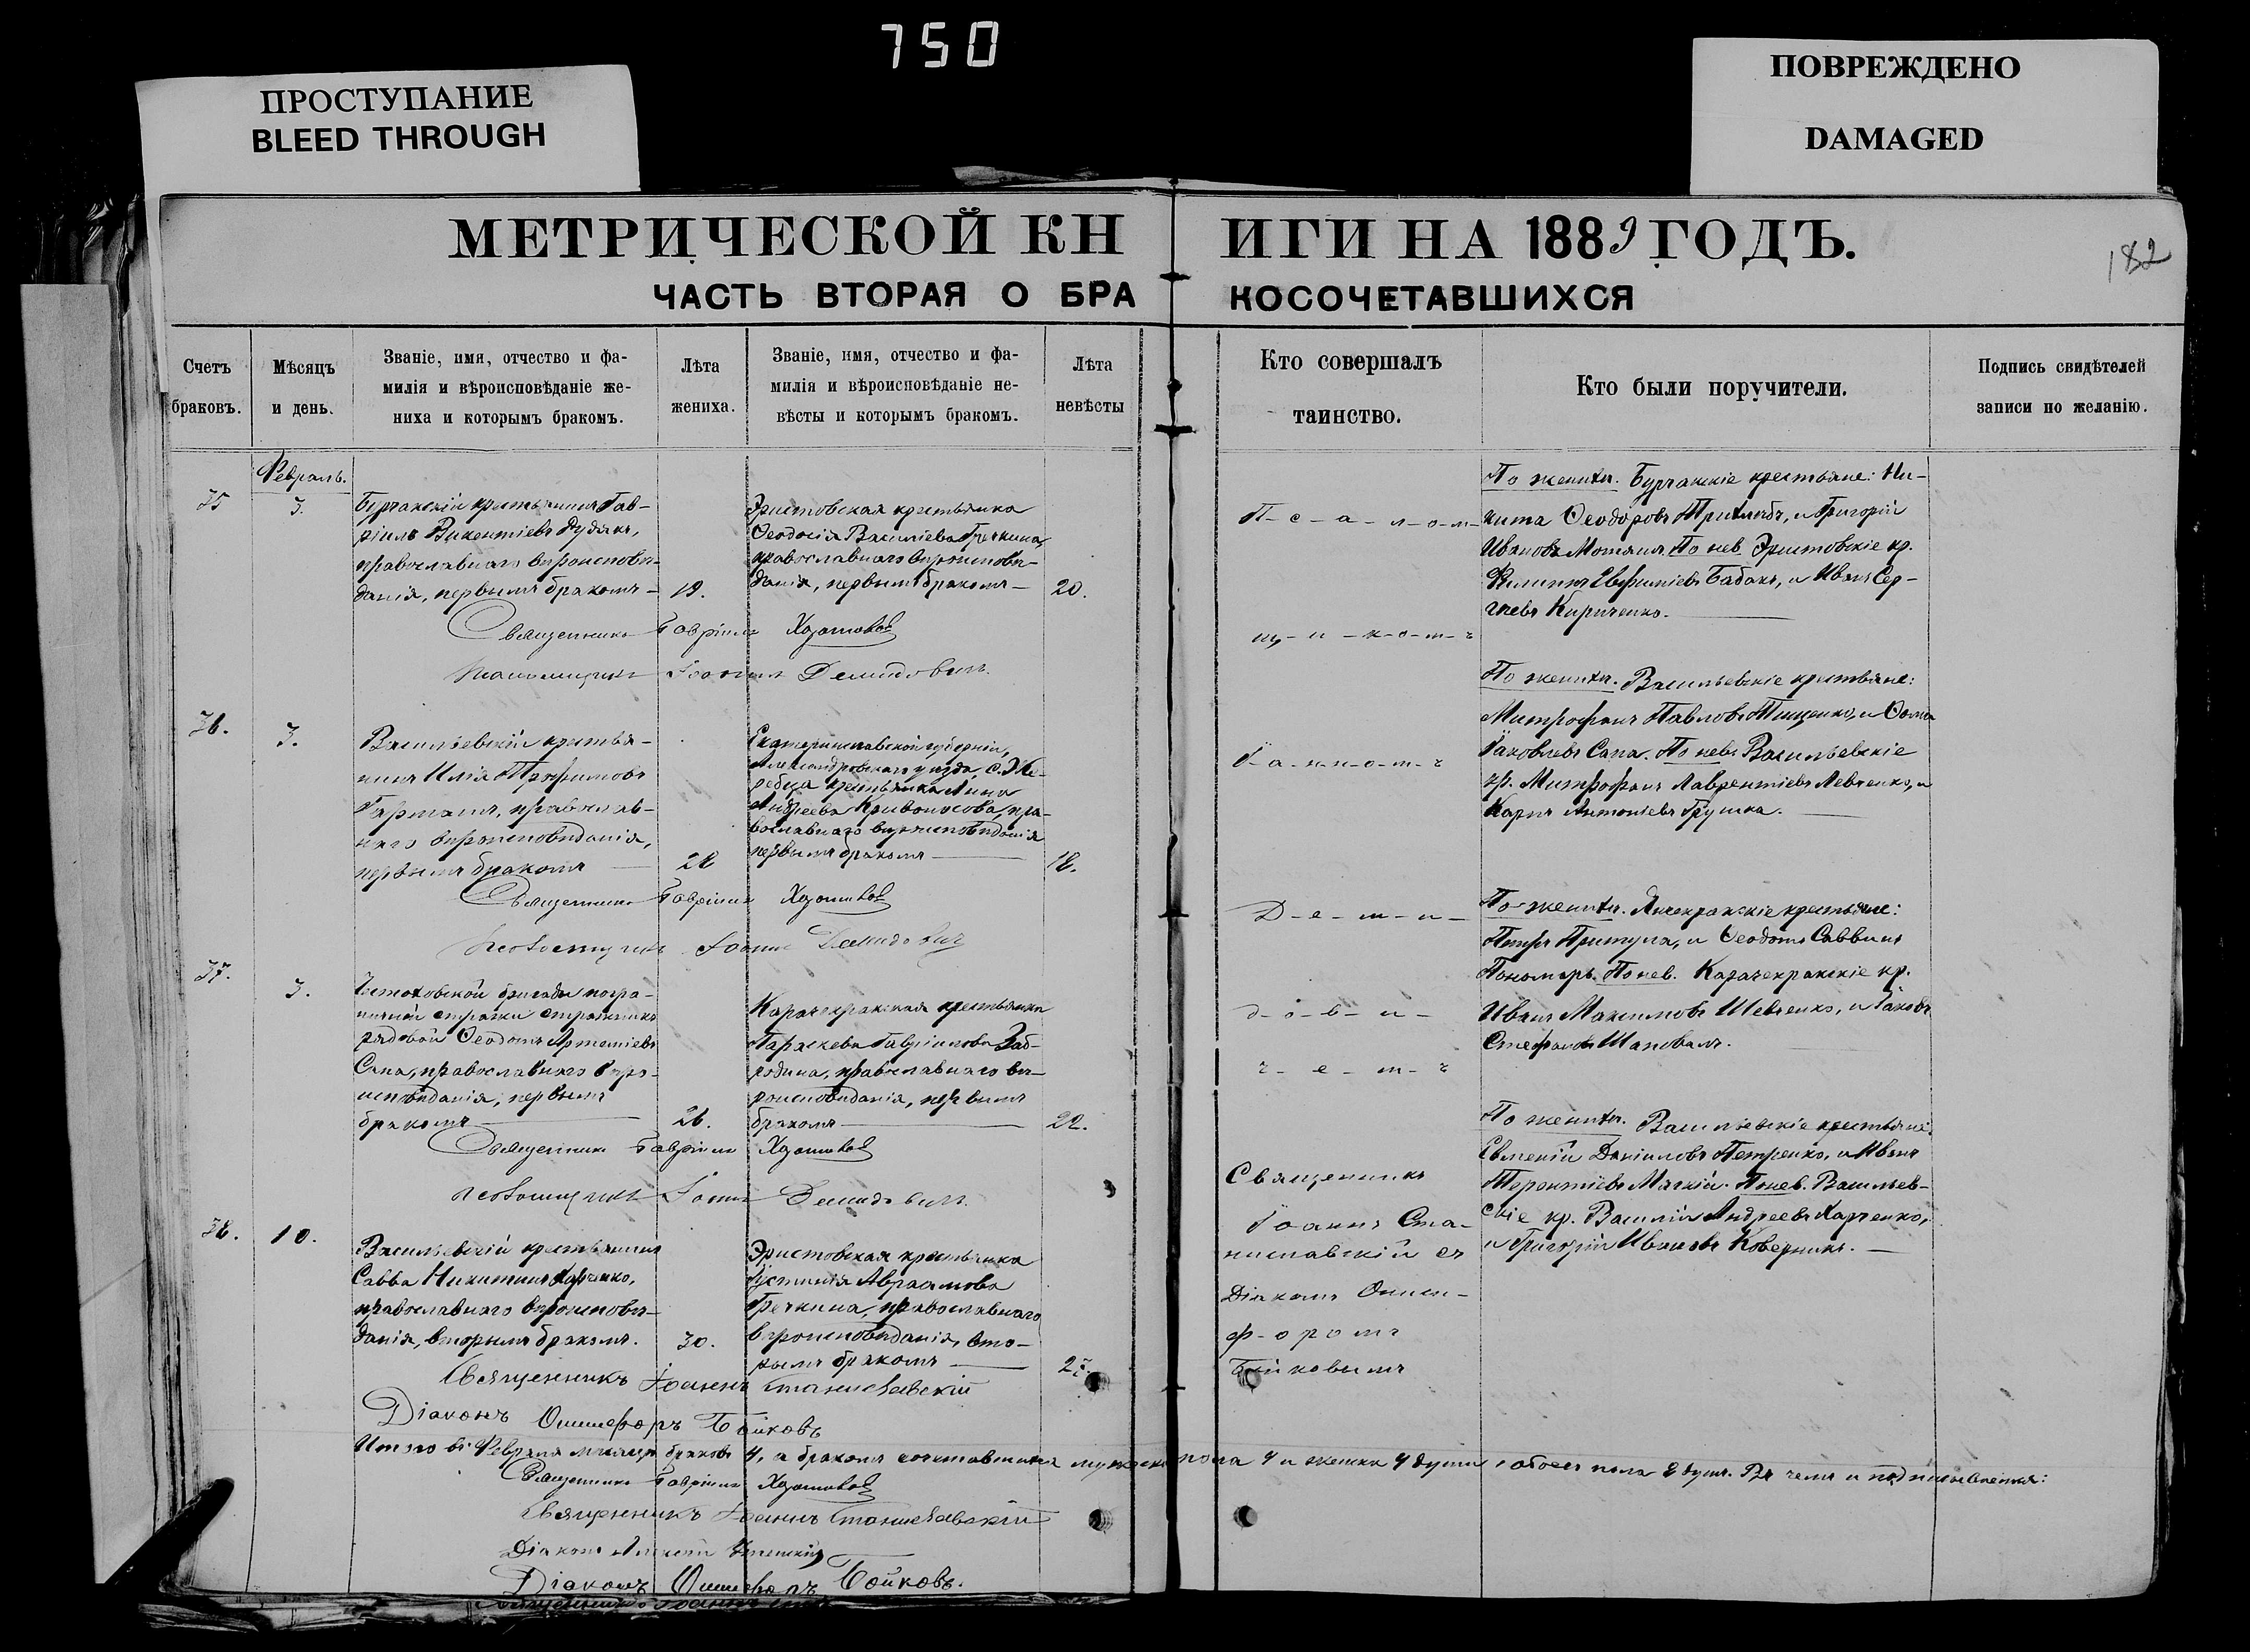 750
ПРОСТУПАНИЕ
BLEED THROUGH
ПОВРЕЖДЕНО
DAMAGED
МЕТРИЧЕСКОЙ КНИГИ НА 1889 ГОДЪ.
182
ЧАСТЬ ВТОРАЯ О БРАКОСОЧЕТАВШИХСЯ
Счетъ
браковъ.
Мѣсяцъ
и день.
Званіе, имя, отчество и фа-
милія и вѣроисповѣданіе же-
ниха и которымъ бракомъ.
Лѣта
жениха.
Званіе, имя, отчество и фа-
милія и вѣроисповѣданіе не-
вѣсты и которымъ бракомъ.
Лѣта
невѣсты
Кто совершалъ
таинство.
Кто были поручители.
Подпись свидѣтелей
записи по желанію.
Февраль.
35
3.
Бурчакскій крестьянинъ Гав-
ріилъ Викентіевъ Дудакъ,
православнаго вѣроисповѣ-
данія, первымъ бракомъ —
19.
Эристовская крестьянка
Ѳеодосія Василіева Гречкина,
православнаго вѣроисповѣ-
данія, первымъ бракомъ —
20.
П-с-а-л-о-м-
щ-и-к-о-м-ъ
По женихѣ. Бурчакскіе крестьяне: Ни-
кита Ѳеодоровъ и Григорій
Ивановъ Мотяшъ По нев. Эристовскіе кр.
Филиппъ Евфиміевъ Бабакъ, и Иванъ Сер-
гіевъ Кириченко.
Священникъ Гавріилъ
Псаломщикъ Іоаннъ Демидовичъ.
36.
3.
Васильевскій крестья-
нинъ Илія Трофимовъ
православ-
наго вѣроисповѣданія,
первымъ бракомъ —
28
Екатеринославской губерніи,
Александровскаго уѣзда, с. Же-
ребца крестьянка Анна
Андреева Кривоносова, пра-
вославнаго вѣроисповѣданія
первымъ бракомъ —
18.
І-а-н-н-о-м-ъ
По женихѣ. Васильевскіе крестьяне:
Митрофанъ Павловъ Тищенко, и Ѳома
Іаковлевъ Сапа. По невѣ Васильевскіе
кр. Митрофанъ Лаврентіевъ Левченко, и
Карпъ Антоніевъ Грушка.
Священникъ Гавріилъ
Псаломщикъ Іоаннъ Демидовичъ
37.
3.
Ченстоховской бригады погра-
ничной стражи стражникъ
рядовой Ѳеодотъ Артеміевъ
Сапа, православнаго вѣро-
исповѣданія, первымъ
бракомъ —
26.
Карачекракская крестьянка
Параскева Гавріилова Заб-
родина, православнаго вѣ-
роисповѣданія, первымъ
бракомъ —
22.
Д-е-м-и-
д-о-в-и-
ч-е-м-ъ
По женихѣ. Янчекракскіе крестьяне:
Петръ Притула, и Ѳеодотъ Саввинъ
Пономарь. По нев. Карачекракскіе кр.
Иванъ Максимовъ Шевченко, и Іаковъ
Стефановъ Шаповалъ.
Священникъ Гавріилъ
Псаломщикъ Іоаннъ Демидовичъ.
38.
10.
Васильевскій крестьянинъ
Савва Никитинъ Харченко,
православнаго вѣроисповѣ-
данія, вторымъ бракомъ.
30.
Эристовская крестьянка
Іустинія Авраамова
Гречкина, православнаго
вѣроисповѣданія, вто-
рымъ бракомъ —
Священникъ
Іоаннъ Ста-
ниславскій съ
Діакономъ Ониси-
ф-оромъ
Бойковымъ
По женихѣ. Васильевскіе крестьяне:
Евменій Даніиловъ Петренко, и Иванъ
Терентіевъ Мягкій. По нев. Васильев-
скіе кр. Василій Андреевъ Харченко,
и Григорій Ивановъ Коверникъ. —
Священникъ Іоаннъ Станиславскій
Діаконъ Онисифоръ Бойковъ
Итого въ Февралѣ мѣсяцѣ браковъ 4, а бракомъ сочетавшихся мужеска пола 4 и женска 4 души, обоего пола 8 душъ. Въ чемъ и подписываемся:
Священникъ Гавріилъ
Священникъ Іоаннъ Станиславскій
Діаконъ Алексій
Діаконъ Онисифоръ Бойковъ.